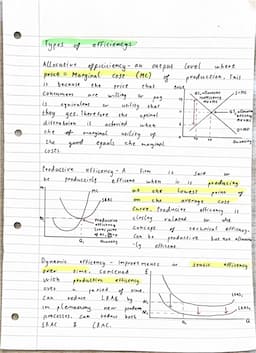 Types of efficiency
Allocative efficiency - an output level where
price = Marginal cost (MC) of production. This
is because the price that
consumers are willing to pay
is equivalent to utility that
they get. Therefore the optimal
distribution is achieved when
the marginal utility of
the good equals the marginal
costs
MC
Quantity
Productive efficiency - A firm is said to
be productively efficient when it is producing
at the lowest point of
on the average cost
curve. Productive efficiency is
closley related to the
concept of technical efficiency.
can be productive but not
-ly efficient
MC
Productive
efficiency
Quantity
Q₁
Dynamic efficiency - improvements in efficiency
over time. concerned
with productive efficiency
over a period of time.
can reduce LRAC by
implementing new
processes, can reduce both
SRAC & LRAC.
LRAC₁
LRAC₂
Q₁
Q